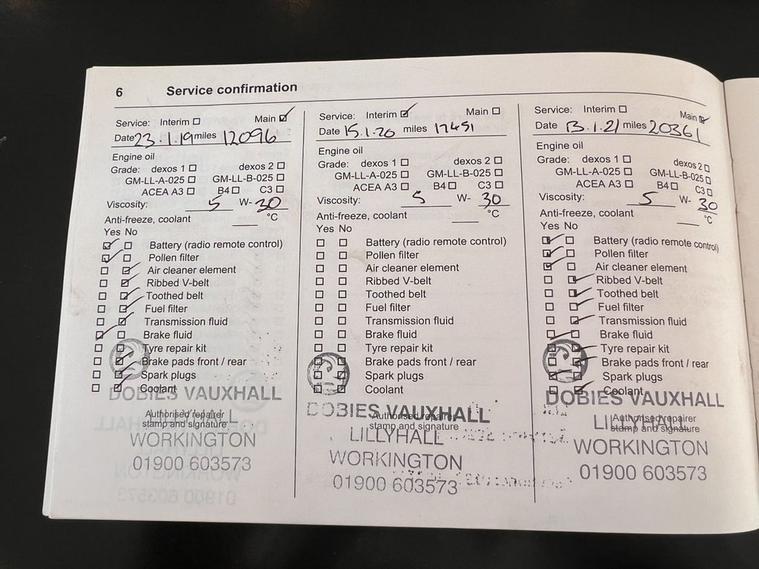 6 Service confirmation
Service: Interim ☐ Main ☑
Date 23.1.19 miles 12096
Engine oil
Grade: dexos 1 ☐ dexos 2 ☐
GM-LL-A-025 ☐ GM-LL-B-025 ☐
ACEA A3 ☐ B4 ☐ C3 ☐
Viscosity: 5 W- 30
Anti-freeze, coolant °C
Yes No
Battery (radio remote control)
Pollen filter
Air cleaner element
Ribbed V-belt
Toothed belt
Fuel filter
Transmission fluid
Brake fluid
Tyre repair kit
Brake pads front / rear
Spark plugs
Coolant
DOBIES VAUXHALL
Authorised repairer
stamp and signature
WORKINGTON
01900 603573
Service: Interim ☑ Main ☐
Date 15.1.20 miles 17451
Engine oil
Grade: dexos 1 ☐ dexos 2 ☐
GM-LL-A-025 ☐ GM-LL-B-025 ☐
ACEA A3 ☐ B4 ☐ C3 ☐
Viscosity: 5 W- 30
Anti-freeze, coolant °C
Yes No
Battery (radio remote control)
Pollen filter
Air cleaner element
Ribbed V-belt
Toothed belt
Fuel filter
Transmission fluid
Brake fluid
Tyre repair kit
Brake pads front / rear
Spark plugs
Coolant
DOBIES VAUXHALL
Authorised repairer
stamp and signature
LILLYHALL
WORKINGTON
01900 603573
Service: Interim ☐ Main ☑
Date 13.1.21 miles 20361
Engine oil
Grade: dexos 1 ☐ dexos 2 ☐
GM-LL-A-025 ☐ GM-LL-B-025 ☐
ACEA A3 ☐ B4 ☐ C3 ☐
Viscosity: 5 W- 30
Anti-freeze, coolant °C
Yes No
Battery (radio remote control)
Pollen filter
Air cleaner element
Ribbed V-belt
Toothed belt
Fuel filter
Transmission fluid
Brake fluid
Tyre repair kit
Brake pads front / rear
Spark plugs
Coolant
DOBIES VAUXHALL
LILLYHALL
Authorised repairer
stamp and signature
WORKINGTON
01900 603573